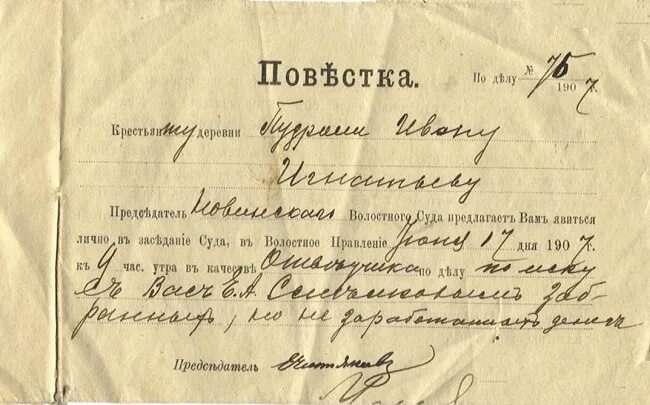 ПОВѢСТКА.
По дѣлу № 76
1907 г.
Крестьянину деревни Пудроли Ивану
Игнатьеву
Предсѣдатель Новинскаго Волостного Суда предлагаетъ Вамъ явиться
лично въ засѣданіе Суда, въ Волостное Правленіе Іюня 17 дня 1907 г.
къ 9 час. утра въ качествѣ Отвѣтчика по дѣлу по иску
съ Васъ Е. А. забранныхъ
, но не заработанныхъ денегъ
Предсѣдатель